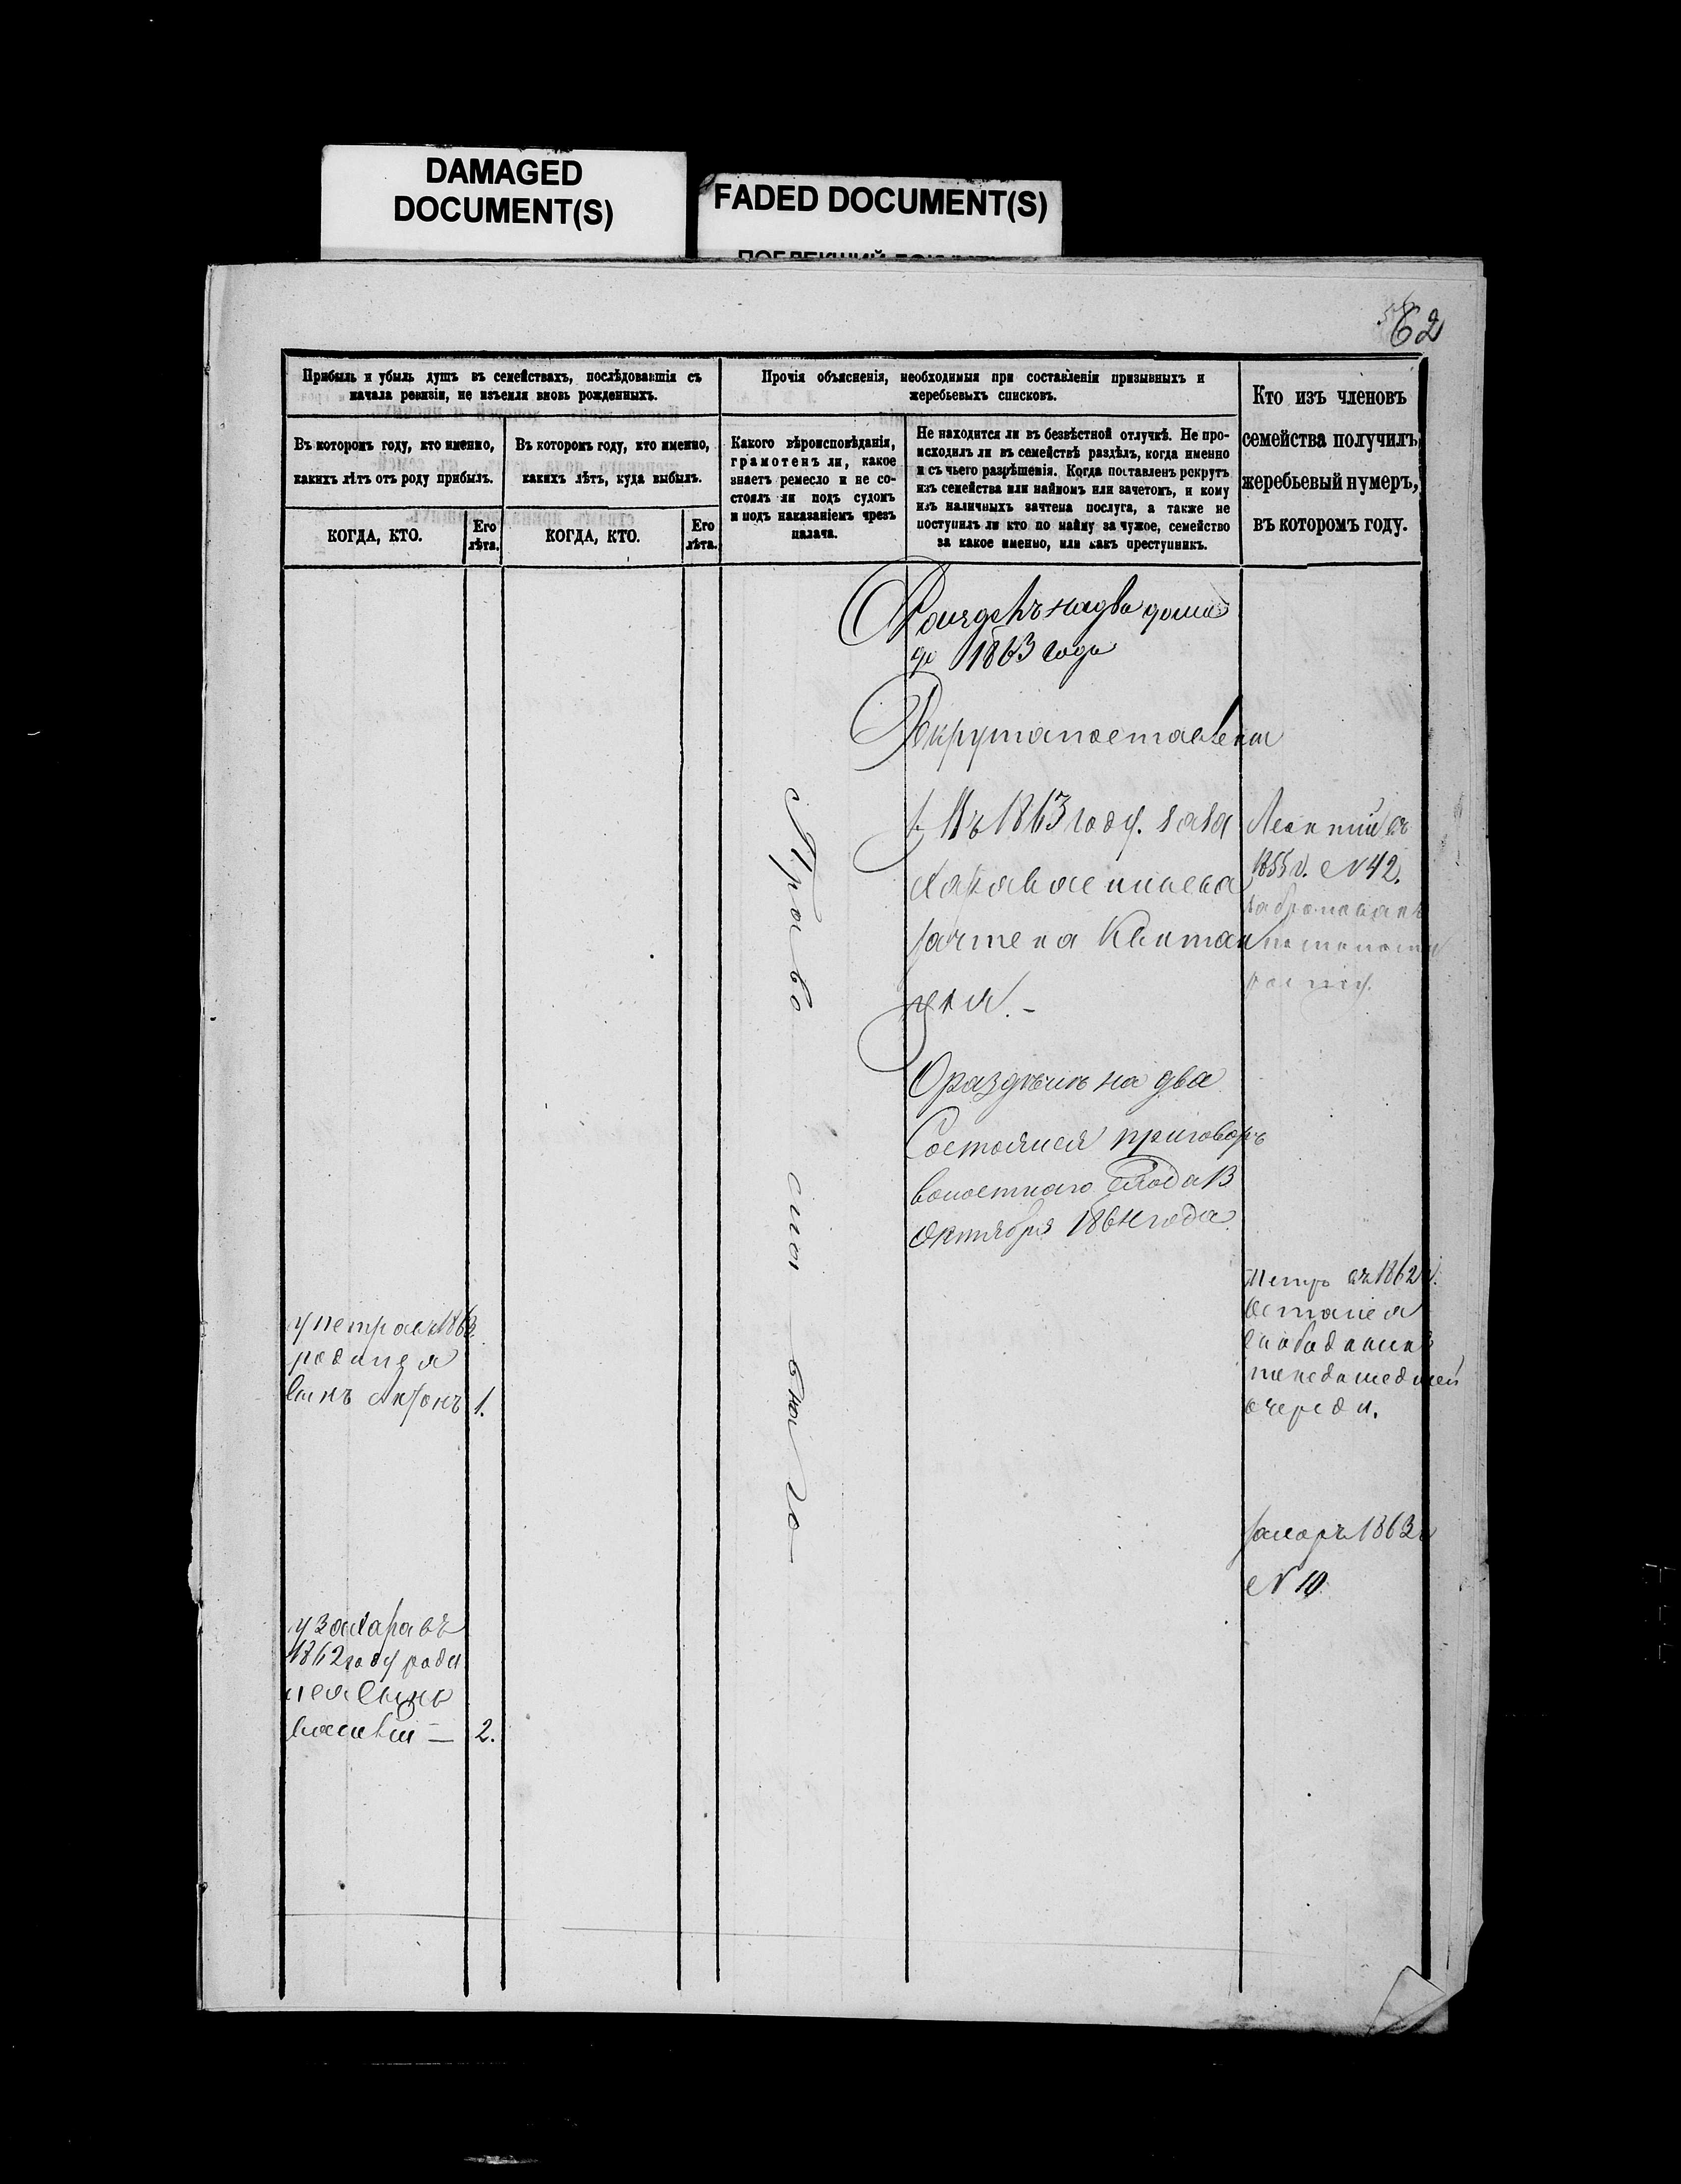 DAMAGED
DOCUMENT(S)
FADED DOCUMENT(S)
62
Прибыль и убыль душъ въ семействахъ, послѣдовавшія съ
начала ревизіи, не изъемля вновь рожденныхъ.
Въ которомъ году, кто именно,
какихъ лѣтъ отъ роду прибылъ.
КОГДА, КТО.
Его
лѣта.
Въ которомъ году, кто именно,
какихъ лѣтъ, куда выбылъ.
КОГДА, КТО.
Его
лѣта.
Прочія объясненія, необходимыя при составленіи призывныхъ и
жеребьевыхъ списковъ.
Какого вѣроисповѣданія,
грамотенъ ли, какое
знаетъ ремесло и не со-
стоялъ ли подъ судомъ
и подъ наказаніемъ чрезъ
палача.
Не находится ли въ безвѣстной отлучкѣ. Не про-
исходилъ ли въ семействѣ раздѣлъ, когда именно
и съ чьего разрѣшенія. Когда поставленъ рекрутъ
изъ семейства или наймомъ или зачетомъ, и кому
изъ наличныхъ зачтена послуга, а также не
поступилъ ли кто по найму за чужое, семейство
за какое именно, или какъ преступникъ.
Кто изъ членовъ
семейства получилъ
жеребьевый нумеръ,
въ которомъ году.
у Петра въ 1863
родился
сынъ Антонъ 1.
у Захара въ
1862 году роди
лся сынъ
Василій — 2.
Право
сла
внаго
Раздѣлъ на два дома
до 1863 года
Рекрута поставлена
Въ 1863 году. за За
хара Васильева
зачтена Квитан
ція. –
О раздѣлѣ на два
Состоялся приговоръ
волостнаго схода 13
Октября 1864 года
Леонтій въ
1855 г. № 42.
Петръ въ 1862 г.
Остался
свободнымъ
по недошедшей
очереди.
Захаръ 1863 г
№ 10